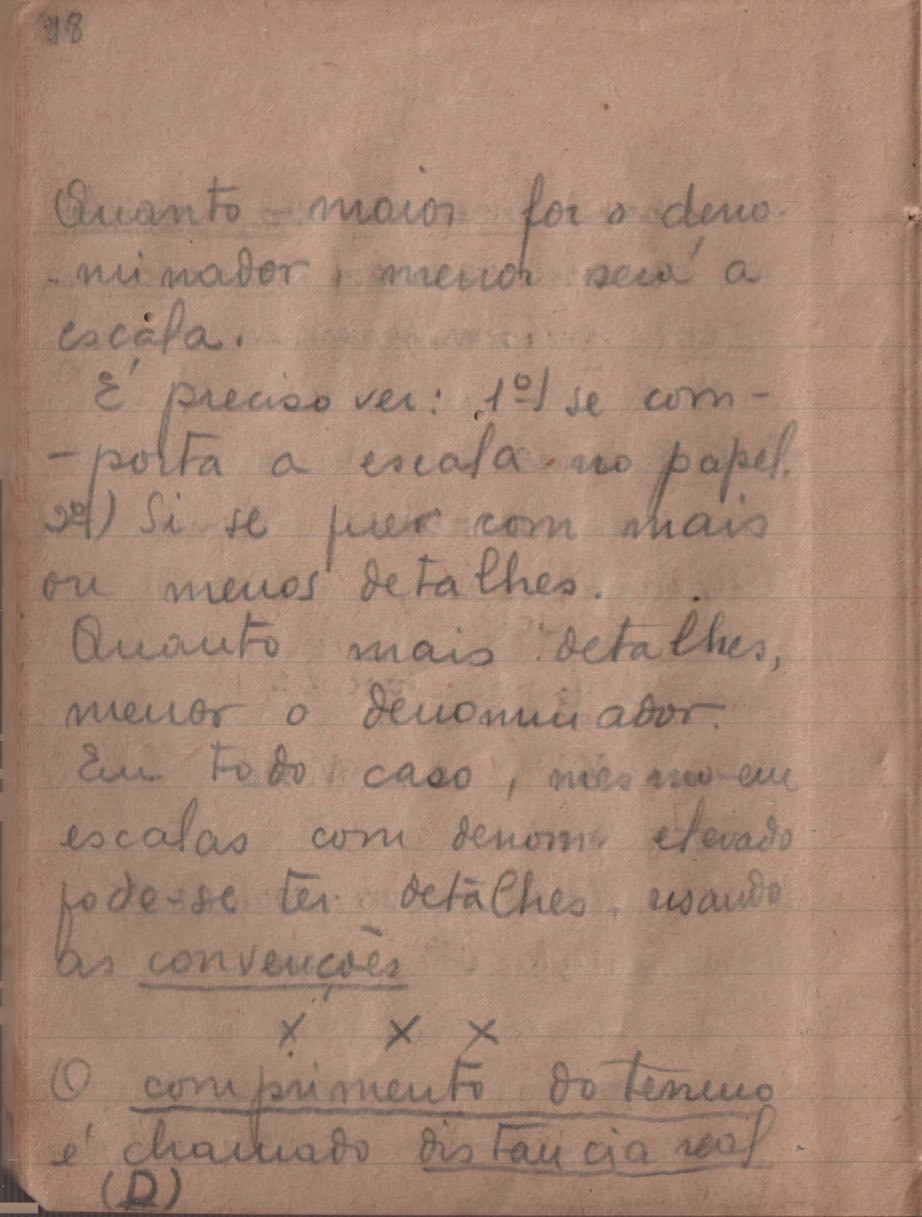 18
Quanto maior for o deno-
-minador, menor será a
escála.
É preciso ver: 1º) se com-
-porta a escala no papel.
2º) Si se quer com mais
ou menos detalhes.
Quanto mais detalhes,
menor o denominador.
Em todo caso, mesmo em
escalas com denom. elevado
pode-se ter detalhes, usando
as convenções
x x x
O comprimento do terreno
é chamado distancia real.
(D)